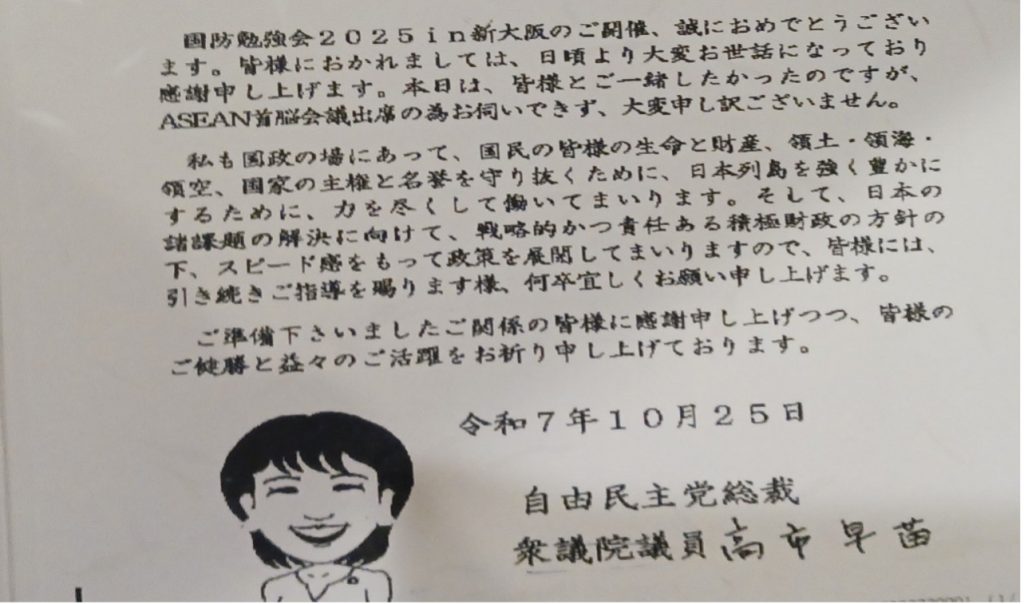 国防勉強会2025in新大阪のご開催、誠におめでとうござい
ます。皆様におかれましては、日頃より大変お世話になっており
感謝申し上げます。本日は、皆様とご一緒したかったのですが、
ASEAN首脳会議出席の為お伺いできず、大変申し訳ございません。
私も国政の場にあって、国民の皆様の生命と財産、領土・領海・
領空、国家の主権と名誉を守り抜くために、日本列島を強く豊かに
するために、力を尽くして働いてまいります。そして、日本の
諸課題の解決に向けて、戦略的かつ責任ある積極財政の方針の
下、スピード感をもって政策を展開してまいりますので、皆様には、
引き続きご指導を賜ります様、何卒宜しくお願い申し上げます。
ご準備下さいましたご関係の皆様に感謝申し上げつつ、皆様の
ご健勝と益々のご活躍をお祈り申し上げております。
令和7年10月25日
自由民主党総裁
衆議院議員高市早苗